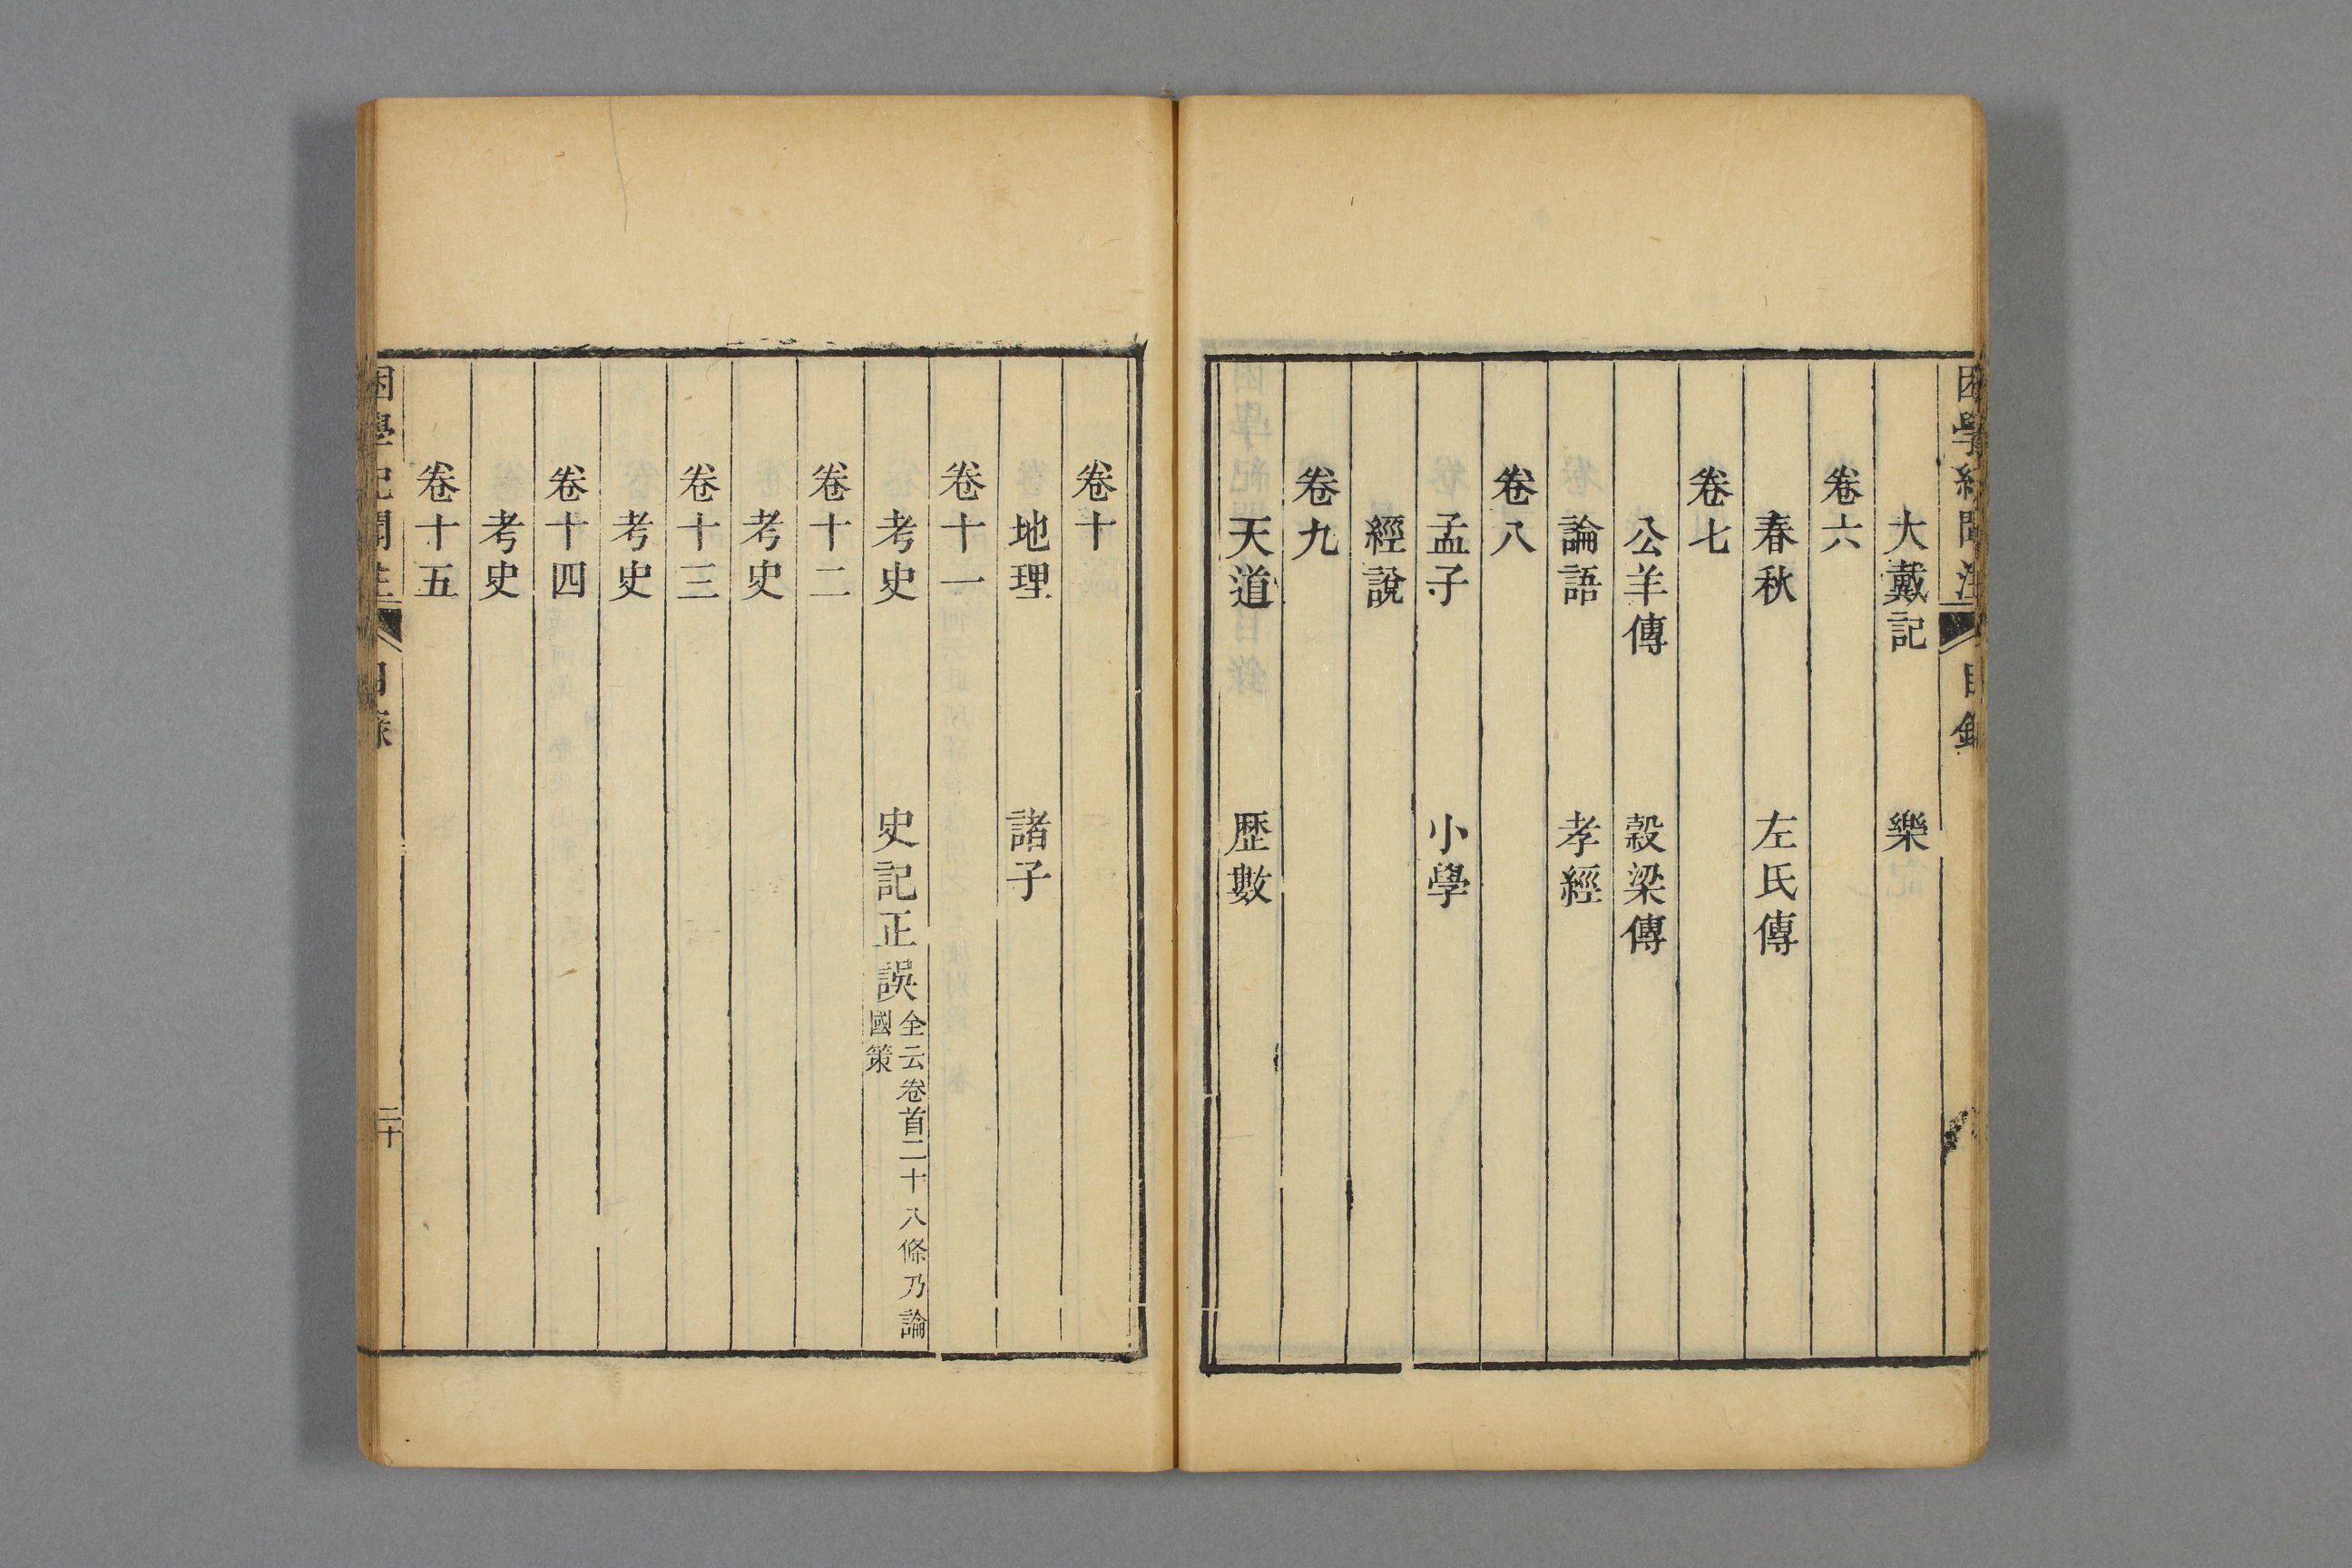 大戴記　樂
卷六
春秋　左氏傳
卷七
公羊傳　穀梁傳
論語　孝經
卷八
孟子　小學
經說
卷九
天道　歷數
卷十
地理　諸子
卷十一
考史　史記正誤全云卷首二十八條乃論
國策
卷十二
考史
卷十三
考史
卷十四
考史
卷十五